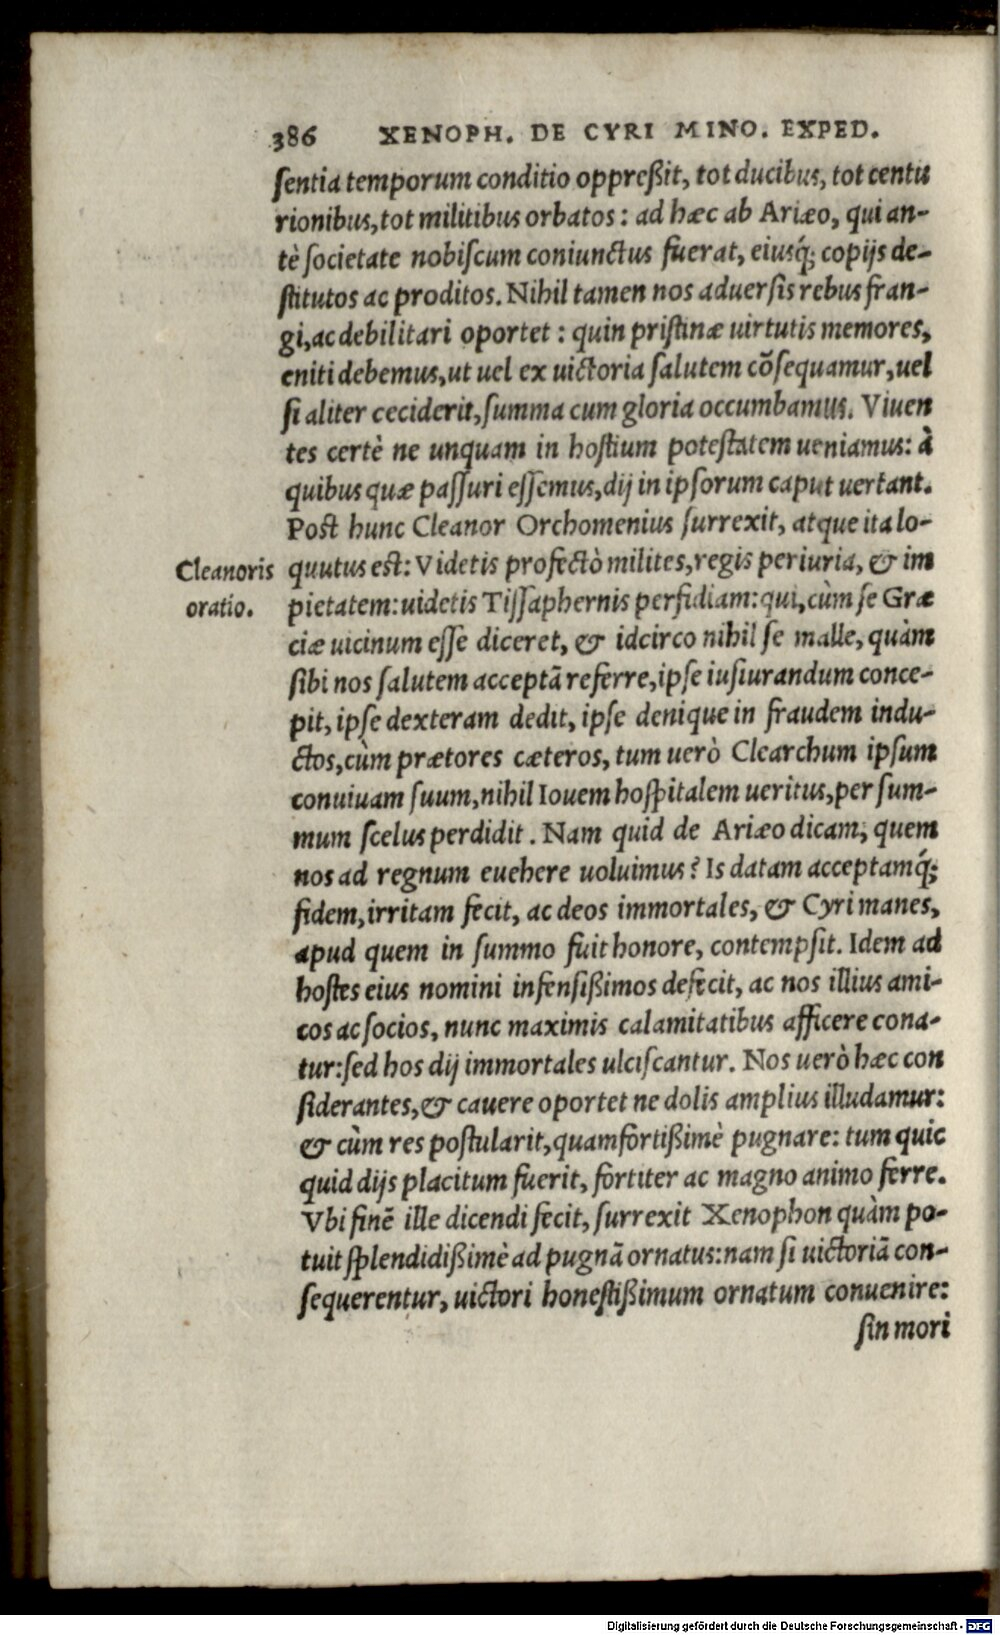 386 XENOPH. DE CYRI MINO. EXPED.
sentia temporum conditio oppreßit, tot ducibus, tot centu
rionibus, tot militibus orbatos: ad hæc ab Ariæo, qui an-
tè societate nobiscum coniunctus fuerat, eiusq́; copijs de-
stitutos ac proditos. Nihil tamen nos aduersis rebus fran-
gi, ac debilitari oportet: quin pristinæ uirtutis memores,
eniti debemus, ut uel ex uictoria salutem cõsequamur, uel
si aliter ceciderit, summa cum gloria occumbamus. Viuen
tes certè ne unquam in hostium potestatem ueniamus: à
quibus quæ passuri essemus, dij in ipsorum caput uertant.
Post hunc Cleanor Orchomenius surrexit, atque ita lo-
Cleanoris oratio.
quutus est: Videtis profectò milites, regis periuria, & im
pietatem: uidetis Tissaphernis perfidiam: qui, cùm se Græ
ciæ uicinum esse diceret, & idcirco nihil se malle, quàm
sibi nos salutem acceptã referre, ipse iusiurandum conce-
pit, ipse dexteram dedit, ipse denique in fraudem indu-
ctos, cùm prætores cæteros, tum uerò Clearchum ipsum
conuiuam suum, nihil Iouem hospitalem ueritus, per sum-
mum scelus perdidit. Nam quid de Ariæo dicam, quem
nos ad regnum euehere uoluimus? Is datam acceptamq́;
fidem, irritam fecit, ac deos immortales, & Cyri manes,
apud quem in summo fuit honore, contempsit. Idem ad
hostes eius nomini infensißimos defecit, ac nos illius ami-
cos ac socios, nunc maximis calamitatibus afficere cona-
tur: sed hos dij immortales ulciscantur. Nos uerò hæc con
siderantes, & cauere oportet ne dolis amplius illudamur:
& cùm res postularit, quamfortißimè pugnare: tum quic
quid dijs placitum fuerit, fortiter ac magno animo ferre.
Vbi finẽ ille dicendi fecit, surrexit Xenophon quàm po-
tuit splendidißimè ad pugnã ornatus: nam si uictoriã con-
sequerentur, uictori honestißimum ornatum conuenire:
sin mori
Digitalisierung gefördert durch die Deutsche Forschungsgemeinschaft - DFG